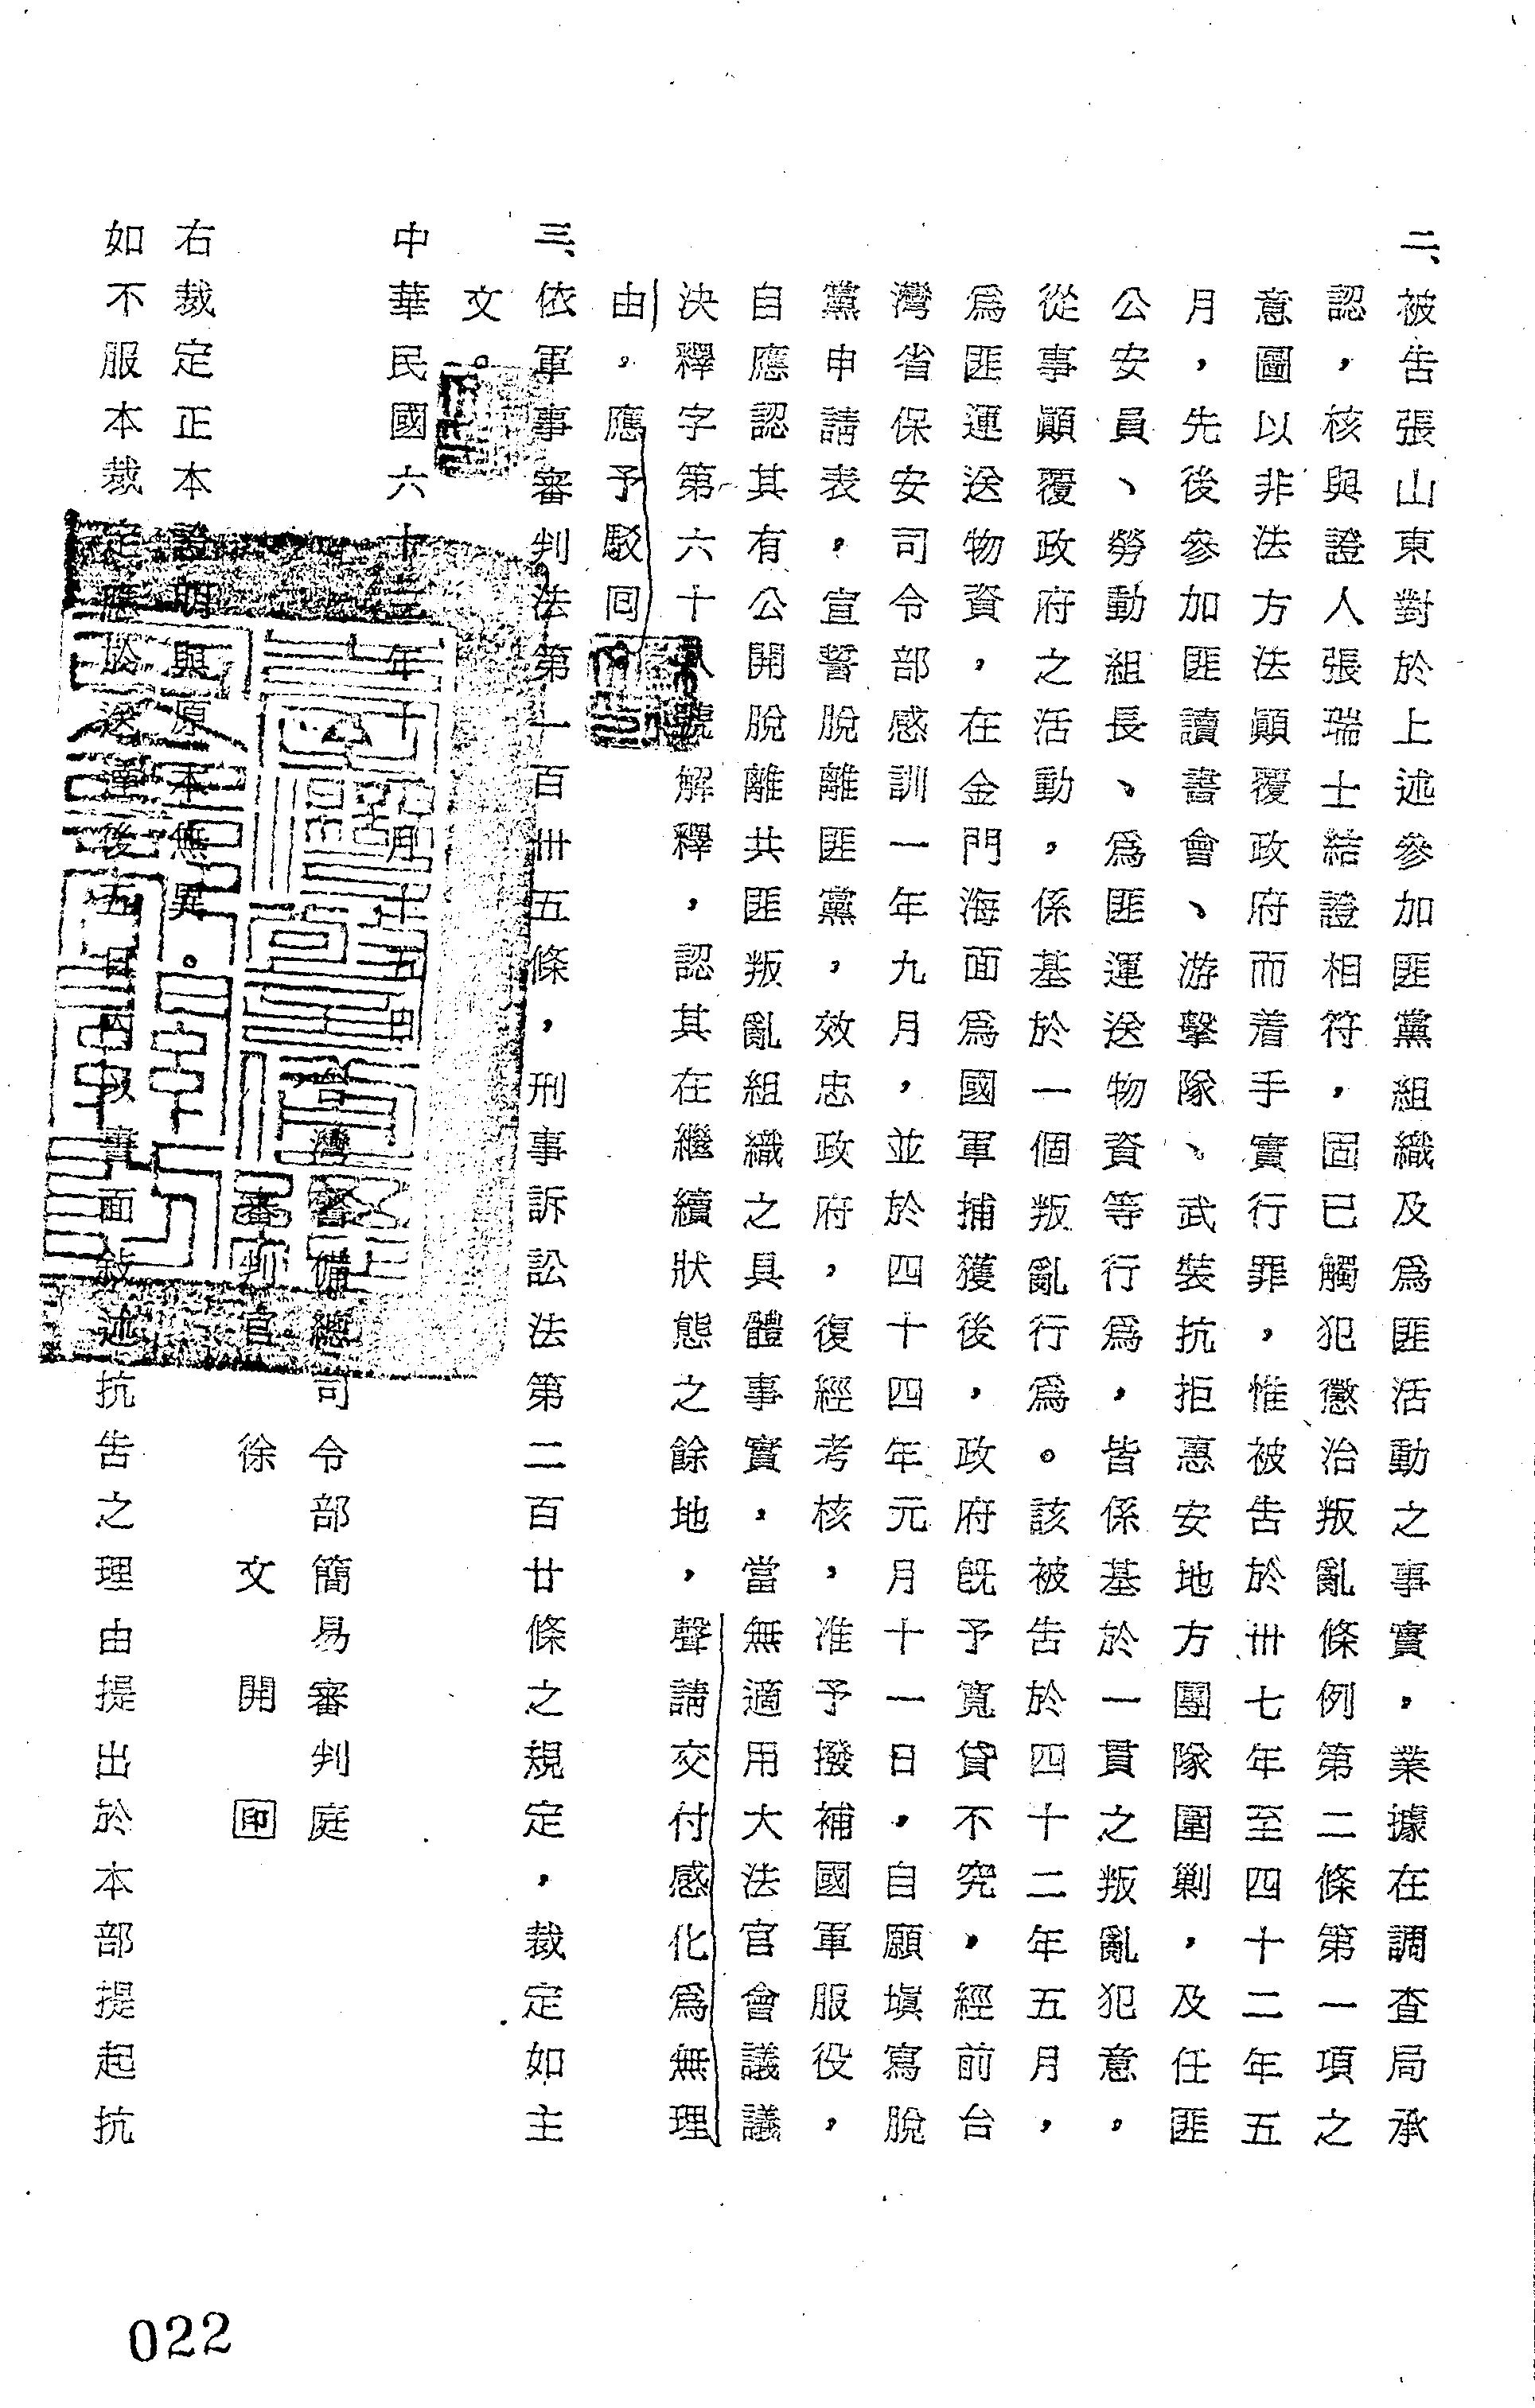 二、被告張山東對於上述參加匪黨組織及爲匪活動之事實，業據在調查局承
認，核與證人張瑞士結證相符，固已觸犯懲治叛亂條例第二條第一項之
意圖以非法方法顚覆政府而着手實行罪，惟被告於卅七年至四十二年五
月，先後參加匪讀書會、游擊隊、武裝抗拒惠安地方團隊圍剿，及任匪
公安員、勞動組長、爲匪運送物資等行爲，皆係基於一貫之叛亂犯意。
從事顚覆政府之活動，係基於一個叛亂行爲。該被告於四十二年五月，
爲匪運送物資，在金門海面爲國軍捕獲後，政府旣予寬貸不究，經前台
灣省保安司令部感訓一年九月，並於四十四年元月十一日，自願塡寫脫
黨申請表，宣誓脫離匪黨，效忠政府，復經考核，准予撥補國軍服役，
自應認其有公開脫離共匪叛亂組織之具體事實，當無適用大法官會議議
決釋字第六十八號解釋，認其在繼續狀態之餘地，聲請交付感化爲無理
由，應予駁回
三、依軍事審判法第一百卅五條，刑事訴訟法第二百廿條之規定，裁定如主
文。
中華民國六十三年十月十五日
台灣警備總司令部簡易審判庭
審判官 徐文開 印
右裁定正本證明與原本無異。
如不服本裁定應於送達後五日內以書面敍述抗告之理由提出於本部提起抗
022